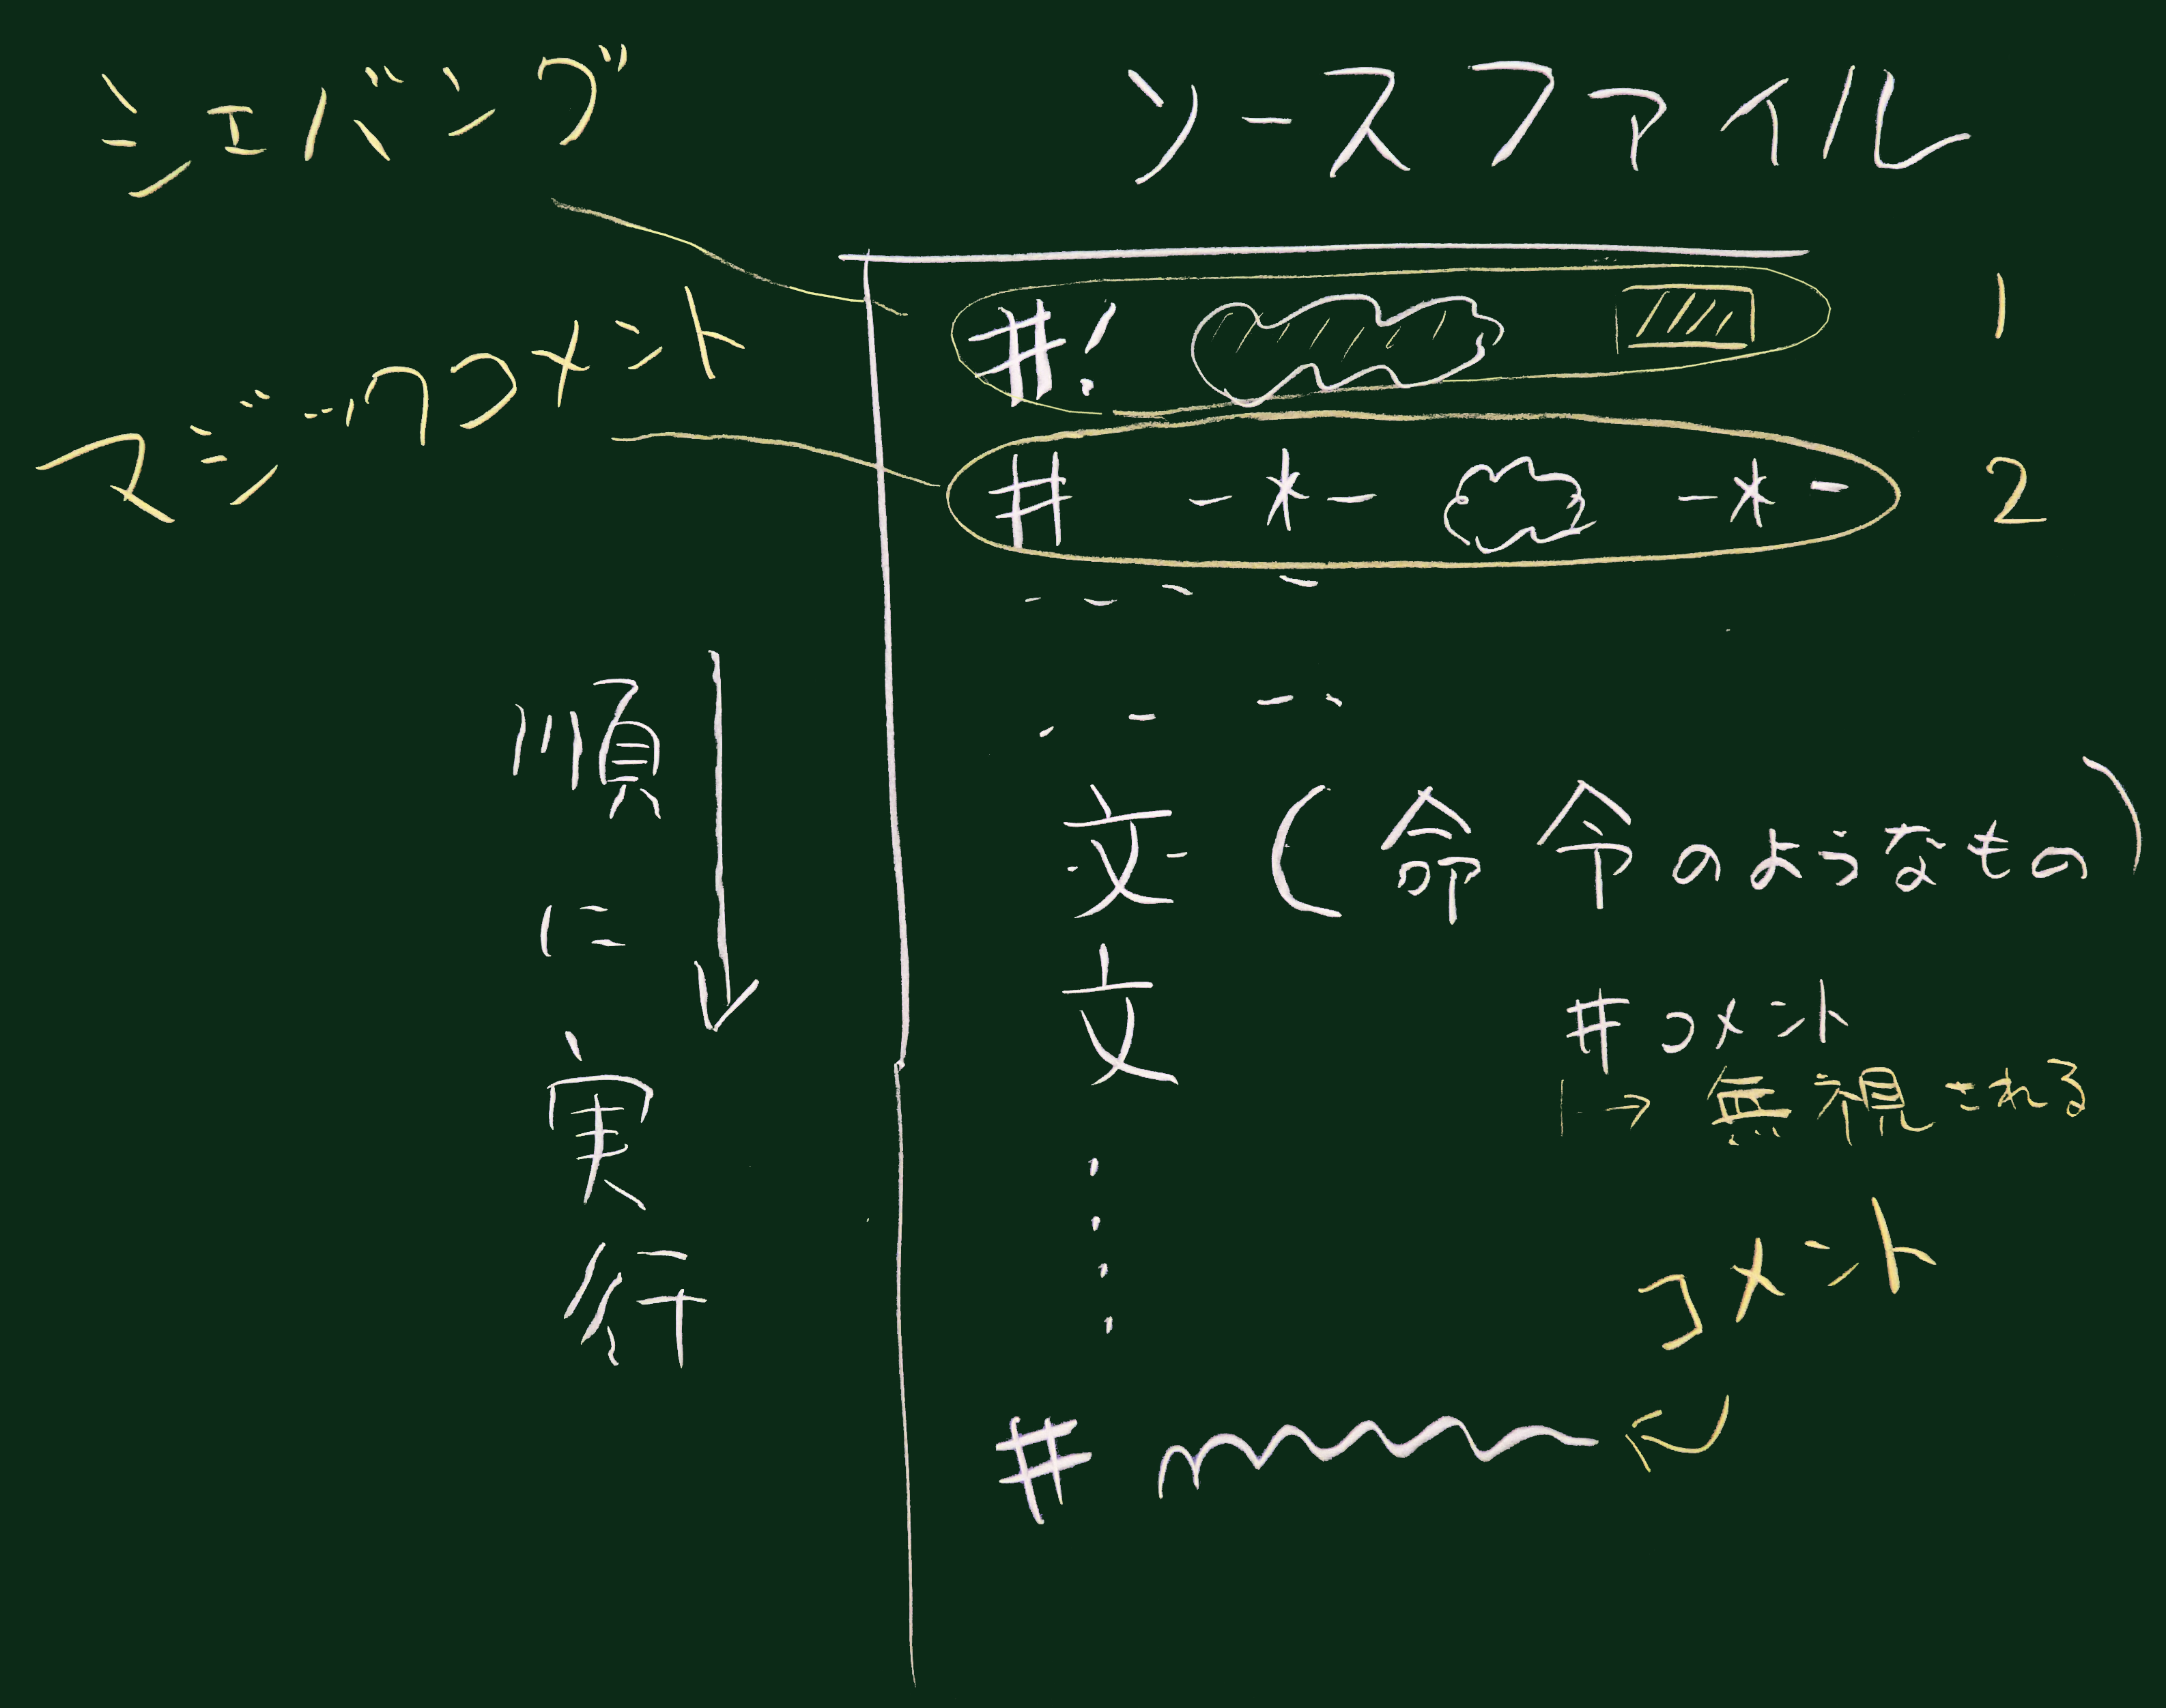 シェバング
ソースファイル
マジックコメント
#! 1
# -*- -*- 2
順に実行
文(命令のようなもの)
文
#コメント
→無視される
コメント
#